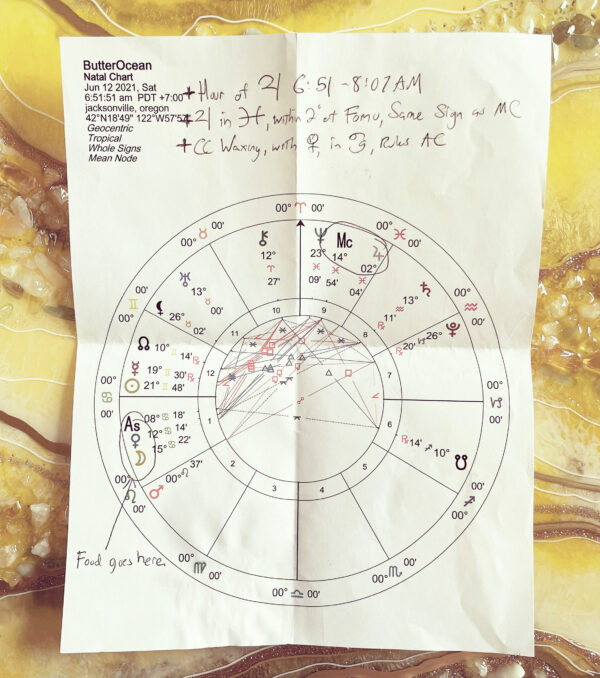 ButterOcean
Natal Chart
Jun 12 2021, Sat
6:51:51 am PDT +7:00
jacksonville, oregon
42°N18'49" 122°W57'
Geocentric
Tropical
Whole Signs
Mean Node
+ Hour of ♃ 6:51 - 8:07 AM
+ ♃ in ♓, within 2° of Fomu, Same Sign as MC
+ CC Waxing, with ♀, in ♋, Rules AC
00° ♈ 00'
00° ♉ 00'
00° ♓ 00'
⚷ 12° ♈ 27'
♆ 23° ♓ 09'
Mc 14° ♓ 54'
♃ 02° ♓ 04'
♅ 13° ♉ 00'
♄ 13° ♒ 11' ℞
00° ♊ 00'
00° ♒ 00'
⚸ 26° ♉ 02'
♇ 26° ♑ 20' ℞
☊ 10° ♊ 14' ℞
☿ 19° ♊ 30' ℞
☉ 21° ♊ 48'
00° ♋ 00'
00° ♑ 00'
As 08° ♋ 18'
♀ 12° ♋ 14'
☽ 15° ♋ 22'
☋ 10° ♐ 14' ℞
♂ 00° ♌ 37'
00° ♌ 00'
00° ♐ 00'
Food goes here.
00° ♍ 00'
00° ♎ 00'
00° ♏ 00'
1
2
3
4
5
6
7
8
9
10
11
12